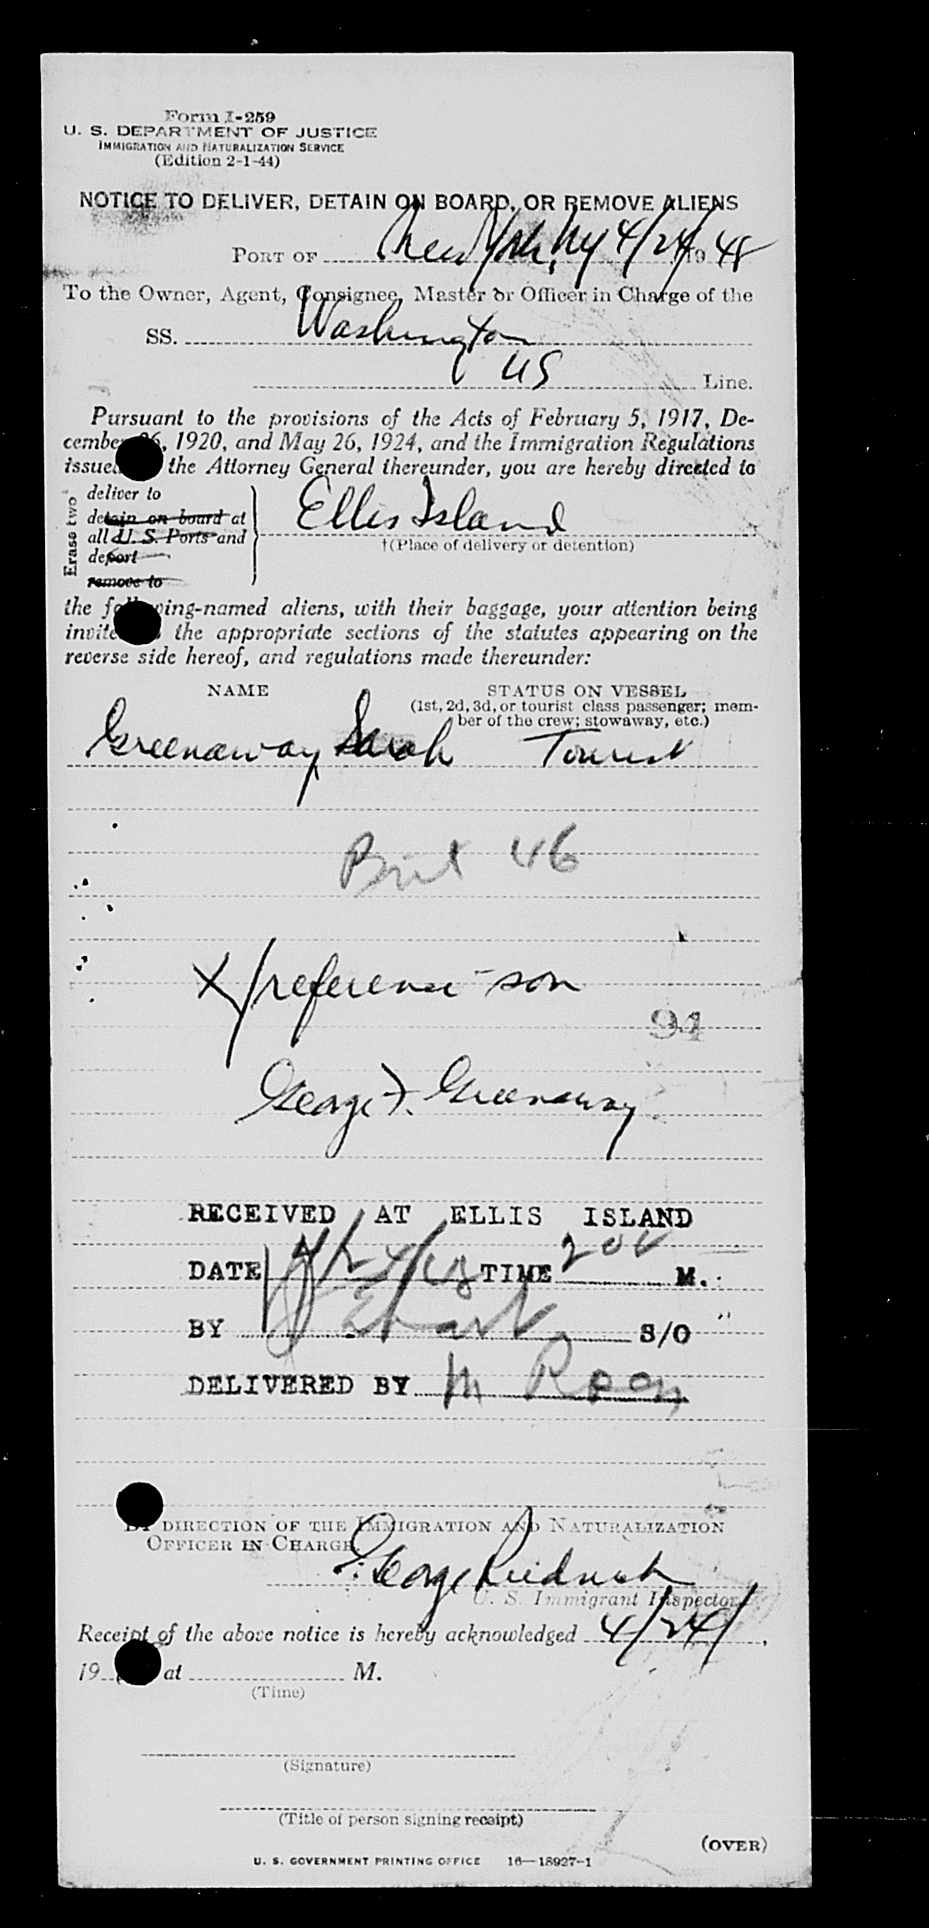 Form I-259
U. S. DEPARTMENT OF JUSTICE
IMMIGRATION AND NATURALIZATION SERVICE
(Edition 2-1-44)
NOTICE TO DELIVER, DETAIN ON BOARD, OR REMOVE ALIENS
PORT OF New York, Ny 4/24 19 48
To the Owner, Agent, Consignee, Master or Officer in Charge of the
SS. Washington
US Line.
Pursuant to the provisions of the Acts of February 5, 1917, De-
cember 26, 1920, and May 26, 1924, and the Immigration Regulations
issued the Attorney General thereunder, you are hereby directed to
Erase two
deliver to
detain on board at
all U. S. Ports and
deport
remove to
Ellis Island
†(Place of delivery or detention)
the following-named aliens, with their baggage, your attention being
invited the appropriate sections of the statutes appearing on the
reverse side hereof, and regulations made thereunder:
NAME STATUS ON VESSEL
(1st, 2d, 3d, or tourist class passenger; mem-
ber of the crew; stowaway, etc.)
Greenaway Sarah Tourist
Brit 46
X/reference - son
94
George F. Greenaway
RECEIVED AT ELLIS ISLAND
DATE 4/24/48 TIME 200 M.
BY S/O
DELIVERED BY M
BY DIRECTION OF THE IMMIGRATION AND NATURALIZATION
OFFICER IN CHARGE
George
U. S. Immigrant Inspector
Receipt of the above notice is hereby acknowledged 4/24/,
19 at M.
(Time)
(Signature)
(Title of person signing receipt)
(OVER)
U. S. GOVERNMENT PRINTING OFFICE 16—18927-1